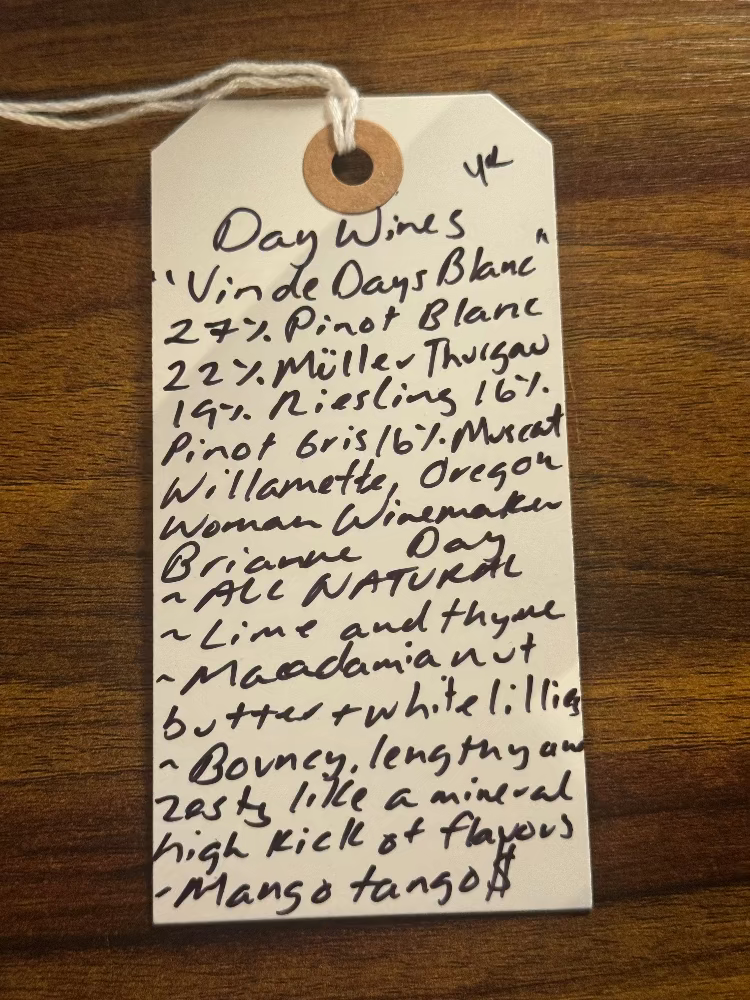 Day Wines
"Vin de Days Blanc"
27% Pinot Blanc
22% Müller Thurgau
19% Riesling 16%
Pinot Gris 16% Muscat
Willamette, Oregon
Woman Winemaker
Brianne Day
~ ALL NATURAL
~ Lime and thyme
~ Macadamia nut
butter + white lillies
~ Bouncy, lengthy and
zesty like a mineral
high kick of flavors
~ Mango tango $